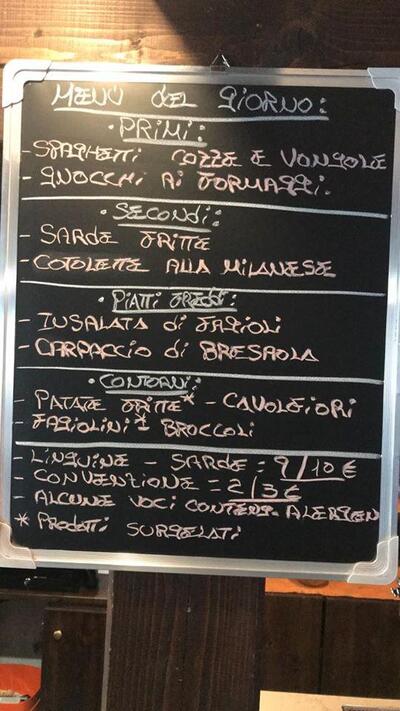 MENÙ DEL GIORNO:
• PRIMI:
- SPAGHETTI COZZE E VONGOLE
- GNOCCHI AI FORMAGGI.
• SECONDI:
- SARDE FRITTE
- COTOLETTE ALLA MILANESE
• PIATTI FREDDI:
- INSALATA di FAGIOLI
- CARPACCIO di BRESAOLA
• CONTORNI:
- PATATE FRITTE* - CAVOLFIORI
- FAGIOLINI* BROCCOLI
- LINGUINE - SARDE = 9/10 €
- CONVENZIONE = 2/3 €
- ALCUNE VOCI CONTENG. ALERGEN
* PRODOTTI SURGELATI